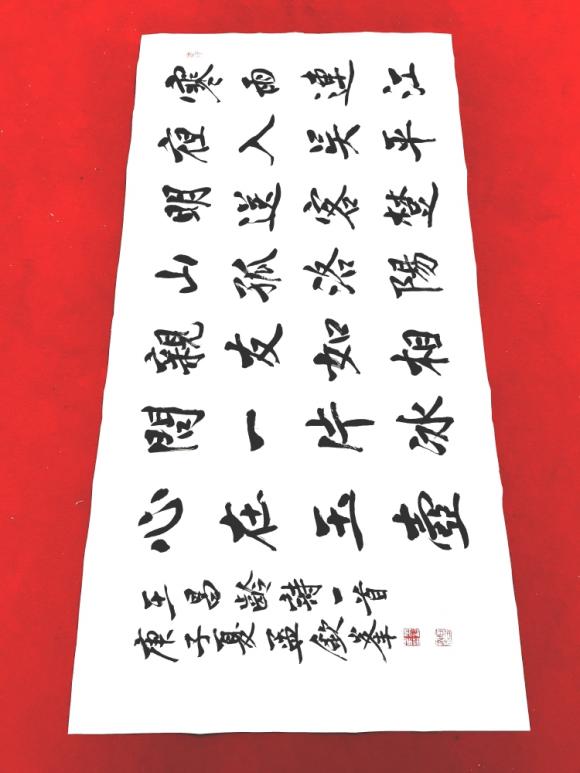 寒雨連江
夜入吴平
明送客楚
山孤洛陽
親友如相
問一片冰
心在玉壺
王昌齡詩一首
庚子夏孟欽峯